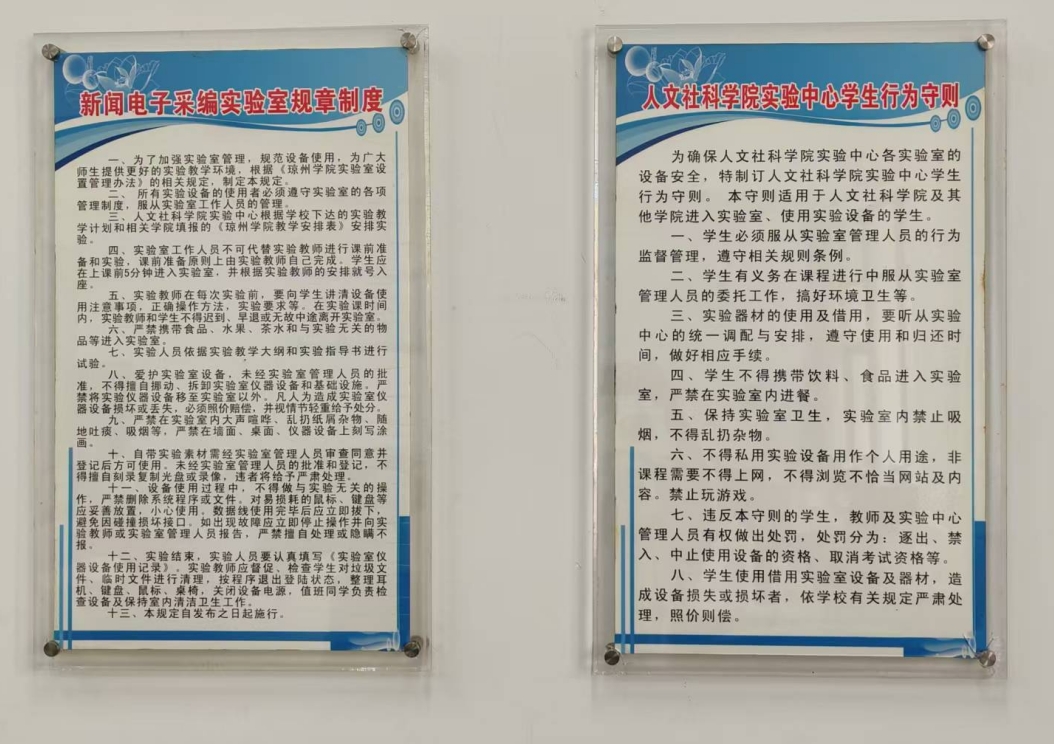 新闻电子采编实验室规章制度
一、为了加强实验室管理，规范设备使用，为广大
师生提供更好的实验教学环境，根据《琼州学院实验室设
置管理办法》的相关规定，制定本规定。
二、 所有实验设备的使用者必须遵守实验室的各项
管理制度，服从实验室工作人员的管理。
三、人文社科学院实验中心根据学校下达的实验教
学计划和相关学院填报的《琼州学院教学安排表》安排实
验。
四、实验室工作人员不可代替实验教师进行课前准
备和实验，课前准备原则上由实验教师自己完成。学生应
在上课前5分钟进入实验室，并根据实验教师的安排就号入
座。
五、实验教师在每次实验前，要向学生讲清设备使
用注意事项，正确操作方法，实验要求等。在实验课时间
内，实验教师和学生不得迟到、早退或无故中途离开实验室。
六、严禁携带食品、水果、茶水和与实验无关的物
品等进入实验室。
七、实验人员依据实验教学大纲和实验指导书进行
试验。
八、爱护实验室设备，未经实验室管理人员的批
准，不得擅自挪动、拆卸实验室仪器设备和基础设施。严
禁将实验仪器设备移至实验室以外。凡人为造成实验室仪
器设备损坏或丢失，必须照价赔偿，并视情节轻重给予处分。
九、严禁在实验室内大声喧哗、乱扔纸屑杂物、随
地吐痰、吸烟等，严禁在墙面、桌面、仪器设备上刻写涂
画。
十、自带实验素材需经实验室管理人员审查同意并
登记后方可使用。未经实验室管理人员的批准和登记，不
得擅自刻录复制光盘或录像，违者将给予严肃处理。
十一、设备使用过程中，不得做与实验无关的操
作，严禁删除系统程序或文件。对易损耗的鼠标、键盘等
应妥善放置，小心使用。数据线使用完毕后应立即拔下，
避免因碰撞损坏接口。如出现故障应立即停止操作并向实
验教师或实验室管理人员报告，严禁擅自处理或隐瞒不
报。
十二、实验结束，实验人员要认真填写《实验室仪
器设备使用记录》。实验教师应督促、检查学生对垃圾文
件、临时文件进行清理，按程序退出登陆状态，整理耳
机、键盘、鼠标、桌椅，关闭设备电源，值班同学负责检
查设备及保持室内清洁卫生工作。
十三、本规定自发布之日起施行。
人文社科学院实验中心学生行为守则
为确保人文社科学院实验中心各实验室的
设备安全，特制订人文社科学院实验中心学生
行为守则。 本守则适用于人文社科学院及其
他学院进入实验室、使用实验设备的学生。
一、学生必须服从实验室管理人员的行为
监督管理，遵守相关规则条例。
二、学生有义务在课程进行中服从实验室
管理人员的委托工作，搞好环境卫生等。
三、实验器材的使用及借用，要听从实验
中心的统一调配与安排，遵守使用和归还时
间，做好相应手续。
四、学生不得携带饮料、食品进入实验
室，严禁在实验室内进餐。
五、保持实验室卫生，实验室内禁止吸
烟，不得乱扔杂物。
六、不得私用实验设备用作个人用途，非
课程需要不得上网，不得浏览不恰当网站及内
容。禁止玩游戏。
七、违反本守则的学生，教师及实验中心
管理人员有权做出处罚，处罚分为：逐出、禁
入、中止使用设备的资格、取消考试资格等。
八、学生使用借用实验室设备及器材，造
成设备损失或损坏者，依学校有关规定严肃处
理，照价则偿。